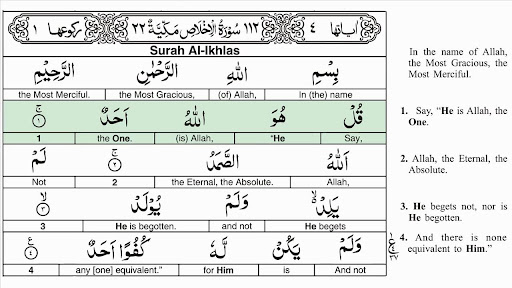 اٰيَاتُهَا ٤ ١١٢ سُوْرَةُ الْاِخْلَاصِ مَكِّيَّةٌ ٢٢ رُكُوْعُهَا ١
Surah Al-Ikhlas
بِسْمِ اللّٰهِ الرَّحْمٰنِ الرَّحِيْمِ
the Most Merciful. the Most Gracious, (of) Allah, In (the) name
قُلْ هُوَ اللّٰهُ اَحَدٌ ۚ ١
1 the One. (is) Allah, "He Say,
اَللّٰهُ الصَّمَدُ ۚ ٢ لَمْ
Not 2 the Eternal, the Absolute. Allah,
يَلِدْ ۙ وَلَمْ يُوْلَدْ ۙ ٣
3 He is begotten. and not He begets
وَلَمْ يَكُنْ لَّهٗ كُفُوًا اَحَدٌ ٤
4 any [one] equivalent." for Him is And not
In the name of Allah,
the Most Gracious, the
Most Merciful.
1. Say, "He is Allah, the
One.
2. Allah, the Eternal, the
Absolute.
3. He begets not, nor is
He begotten.
4. And there is none
equivalent to Him."